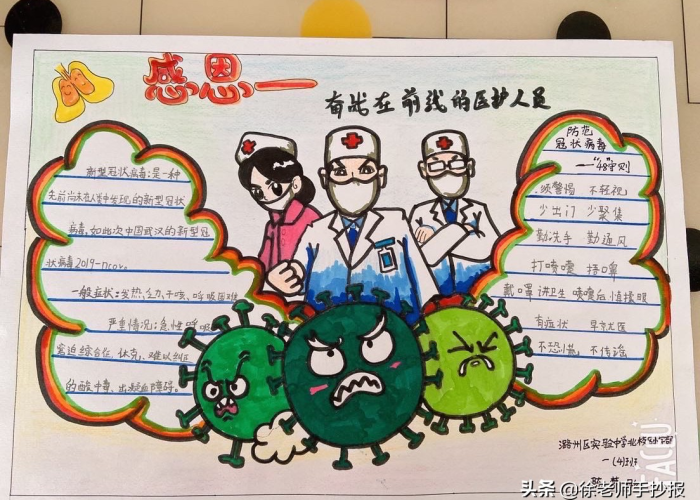 感恩一
奋战在前线的医护人员
新型冠状病毒:是一种
先前尚未在人类中发现的新型冠状
病毒,如此次中国武汉的新型冠
状病毒2019-ncov.
一般症状:发热、乏力、干咳、呼吸困难
严重情况:急性呼吸
窘迫综合征、休克、难以纠正
的酸中毒、出凝血障碍。
防范
冠状病毒
一"48"守则
须警惕 不轻视
少出门 少聚集
勤洗手 勤通风
打喷嚏 捂口鼻
戴口罩 讲卫生
喷嚏后 慎揉眼
有症状 早就医
不恐慌 不传谣
潞州区实验中学北校
一(4)班
头条 @徐老师手抄报